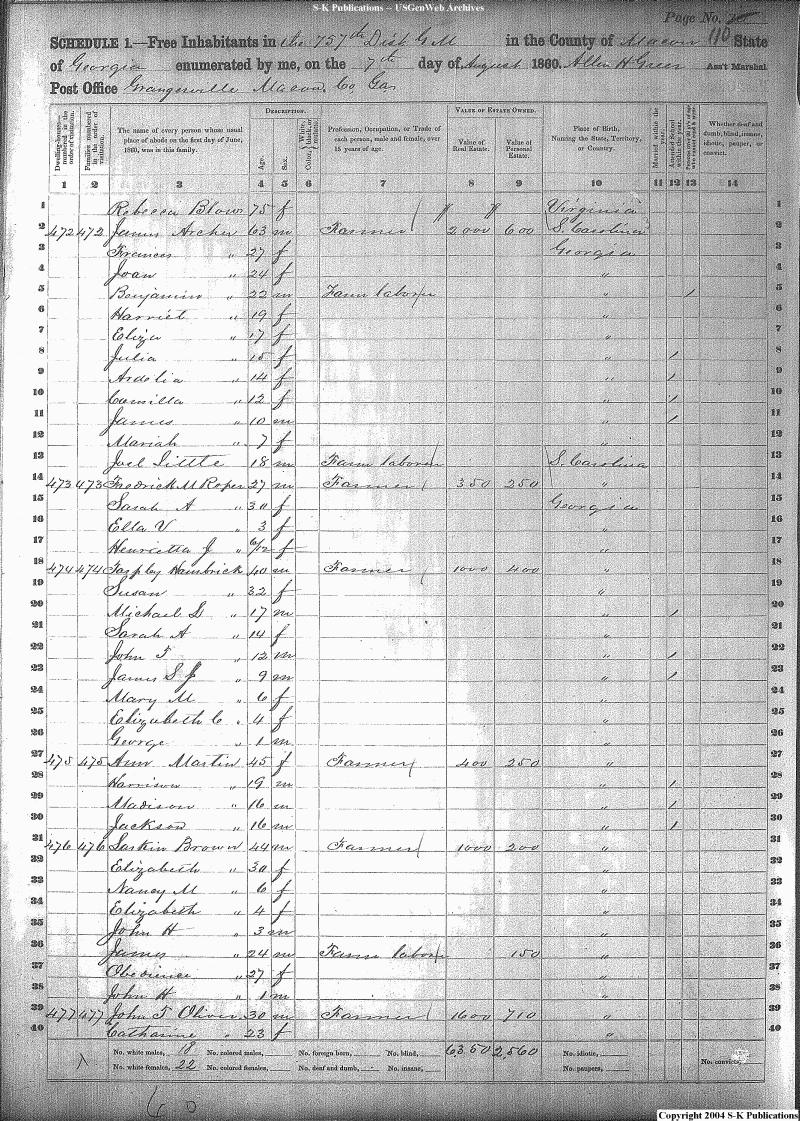 S-K Publications -- USGenWeb Archives
Page No.
110
SCHEDULE 1.—Free Inhabitants in the 757th Dist G.M in the County of Macon State
of Georgia enumerated by me, on the 7th day of August 1860. Allen H Greer Ass't Marshal
Post Office Grangerville Macon Co Ga
Dwelling-houses—numbered in the order of visitation.
Families numbered in the order of visitation.
The name of every person whose usual place of abode on the first day of June, 1860, was in this family.
DESCRIPTION.
Age.
Sex.
Color, White, black, or mulatto.
Profession, Occupation, or Trade of each person, male and female, over 15 years of age.
VALUE OF ESTATE OWNED.
Value of Real Estate.
Value of Personal Estate.
Place of Birth, Naming the State, Territory, or Country.
Married within the year.
Attended School within the year.
Whether deaf and dumb, blind, insane, idiotic, pauper, or convict.
1 2 3 4 5 6 7 8 9 10 11 12 13 14
1 Rebecca Blow 75 f " " Virginia 1
2 472 472 James Archer 63 m Farmer 2000 600 S. Carolina 2
3 Frances " 27 f Georgia 3
4 Joan " 24 f " 4
5 Benjamin " 22 m Farm laborer " / 5
6 Harriet " 19 f " 6
7 Eliza " 17 f " 7
8 Julia " 15 f " / 8
9 Ardelia " 14 f " / 9
10 Camilla " 12 f " / 10
11 James " 10 m " / 11
12 Mariah " 7 f " 12
13 Joel Little 18 m Farm laborer S. Carolina 13
14 473 473 Fredrick M Roper 27 m Farmer 350 250 " 14
15 Sarah A " 30 f Georgia 15
16 Ella V " 3 f " 16
17 Henrietta J " 6/12 f " 17
18 474 474 Hambrick 40 m Farmer 1000 400 " 18
19 Susan " 32 f " 19
20 Michael L " 17 m " / 20
21 Sarah A " 14 f " 21
22 John T " 12 m " / 22
23 James S J " 9 m " / 23
24 Mary M " 6 f " 24
25 Elizabeth C " 4 f " 25
26 George " 1 m " 26
27 475 475 Ann Martin 45 f Farmer 400 250 " 27
28 Harrison " 19 m " / 28
29 Madison " 16 m " / 29
30 Jackson " 16 m " / 30
31 476 476 Larkin Brown 44 m Farmer 1000 200 " 31
32 Elizabeth " 30 f " 32
33 Nancy M " 6 f " 33
34 Elizabeth " 4 f " 34
35 John H " 3 m " 35
36 James " 24 m Farm labor 150 " 36
37 Obedience " 27 f " 37
38 John H " 1 m " 38
39 477 477 John T Oliver 30 m Farmer 1600 710 " 39
40 Catharine " 23 f " 40
No. white males, 18 No. colored males, No. foreign born, No. blind, 6350 2,560 No. idiotic, No. convicts,
No. white females, 22 No. colored females, No. deaf and dumb, No. insane, No. paupers,
Copyright 2004 S-K Publications